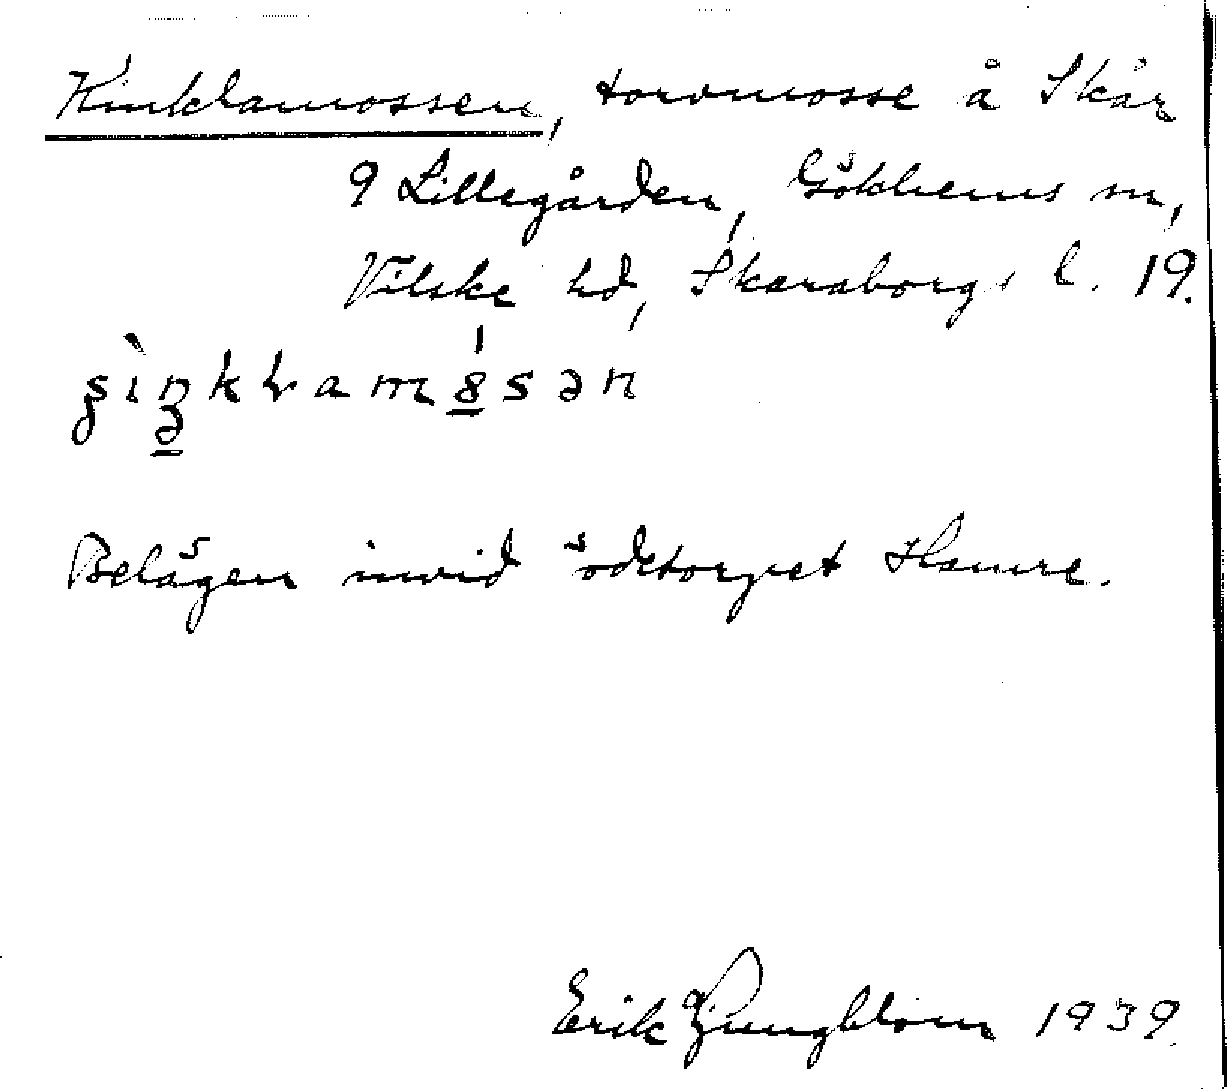 Kinklamossen, torvmosse å Skår
9 Lillegården, Gökhems sn,
Vilske hd, Skaraborgs l. 19.
Belägen invid ödetorpet Hamre.
Erik Ljungblom 1939.